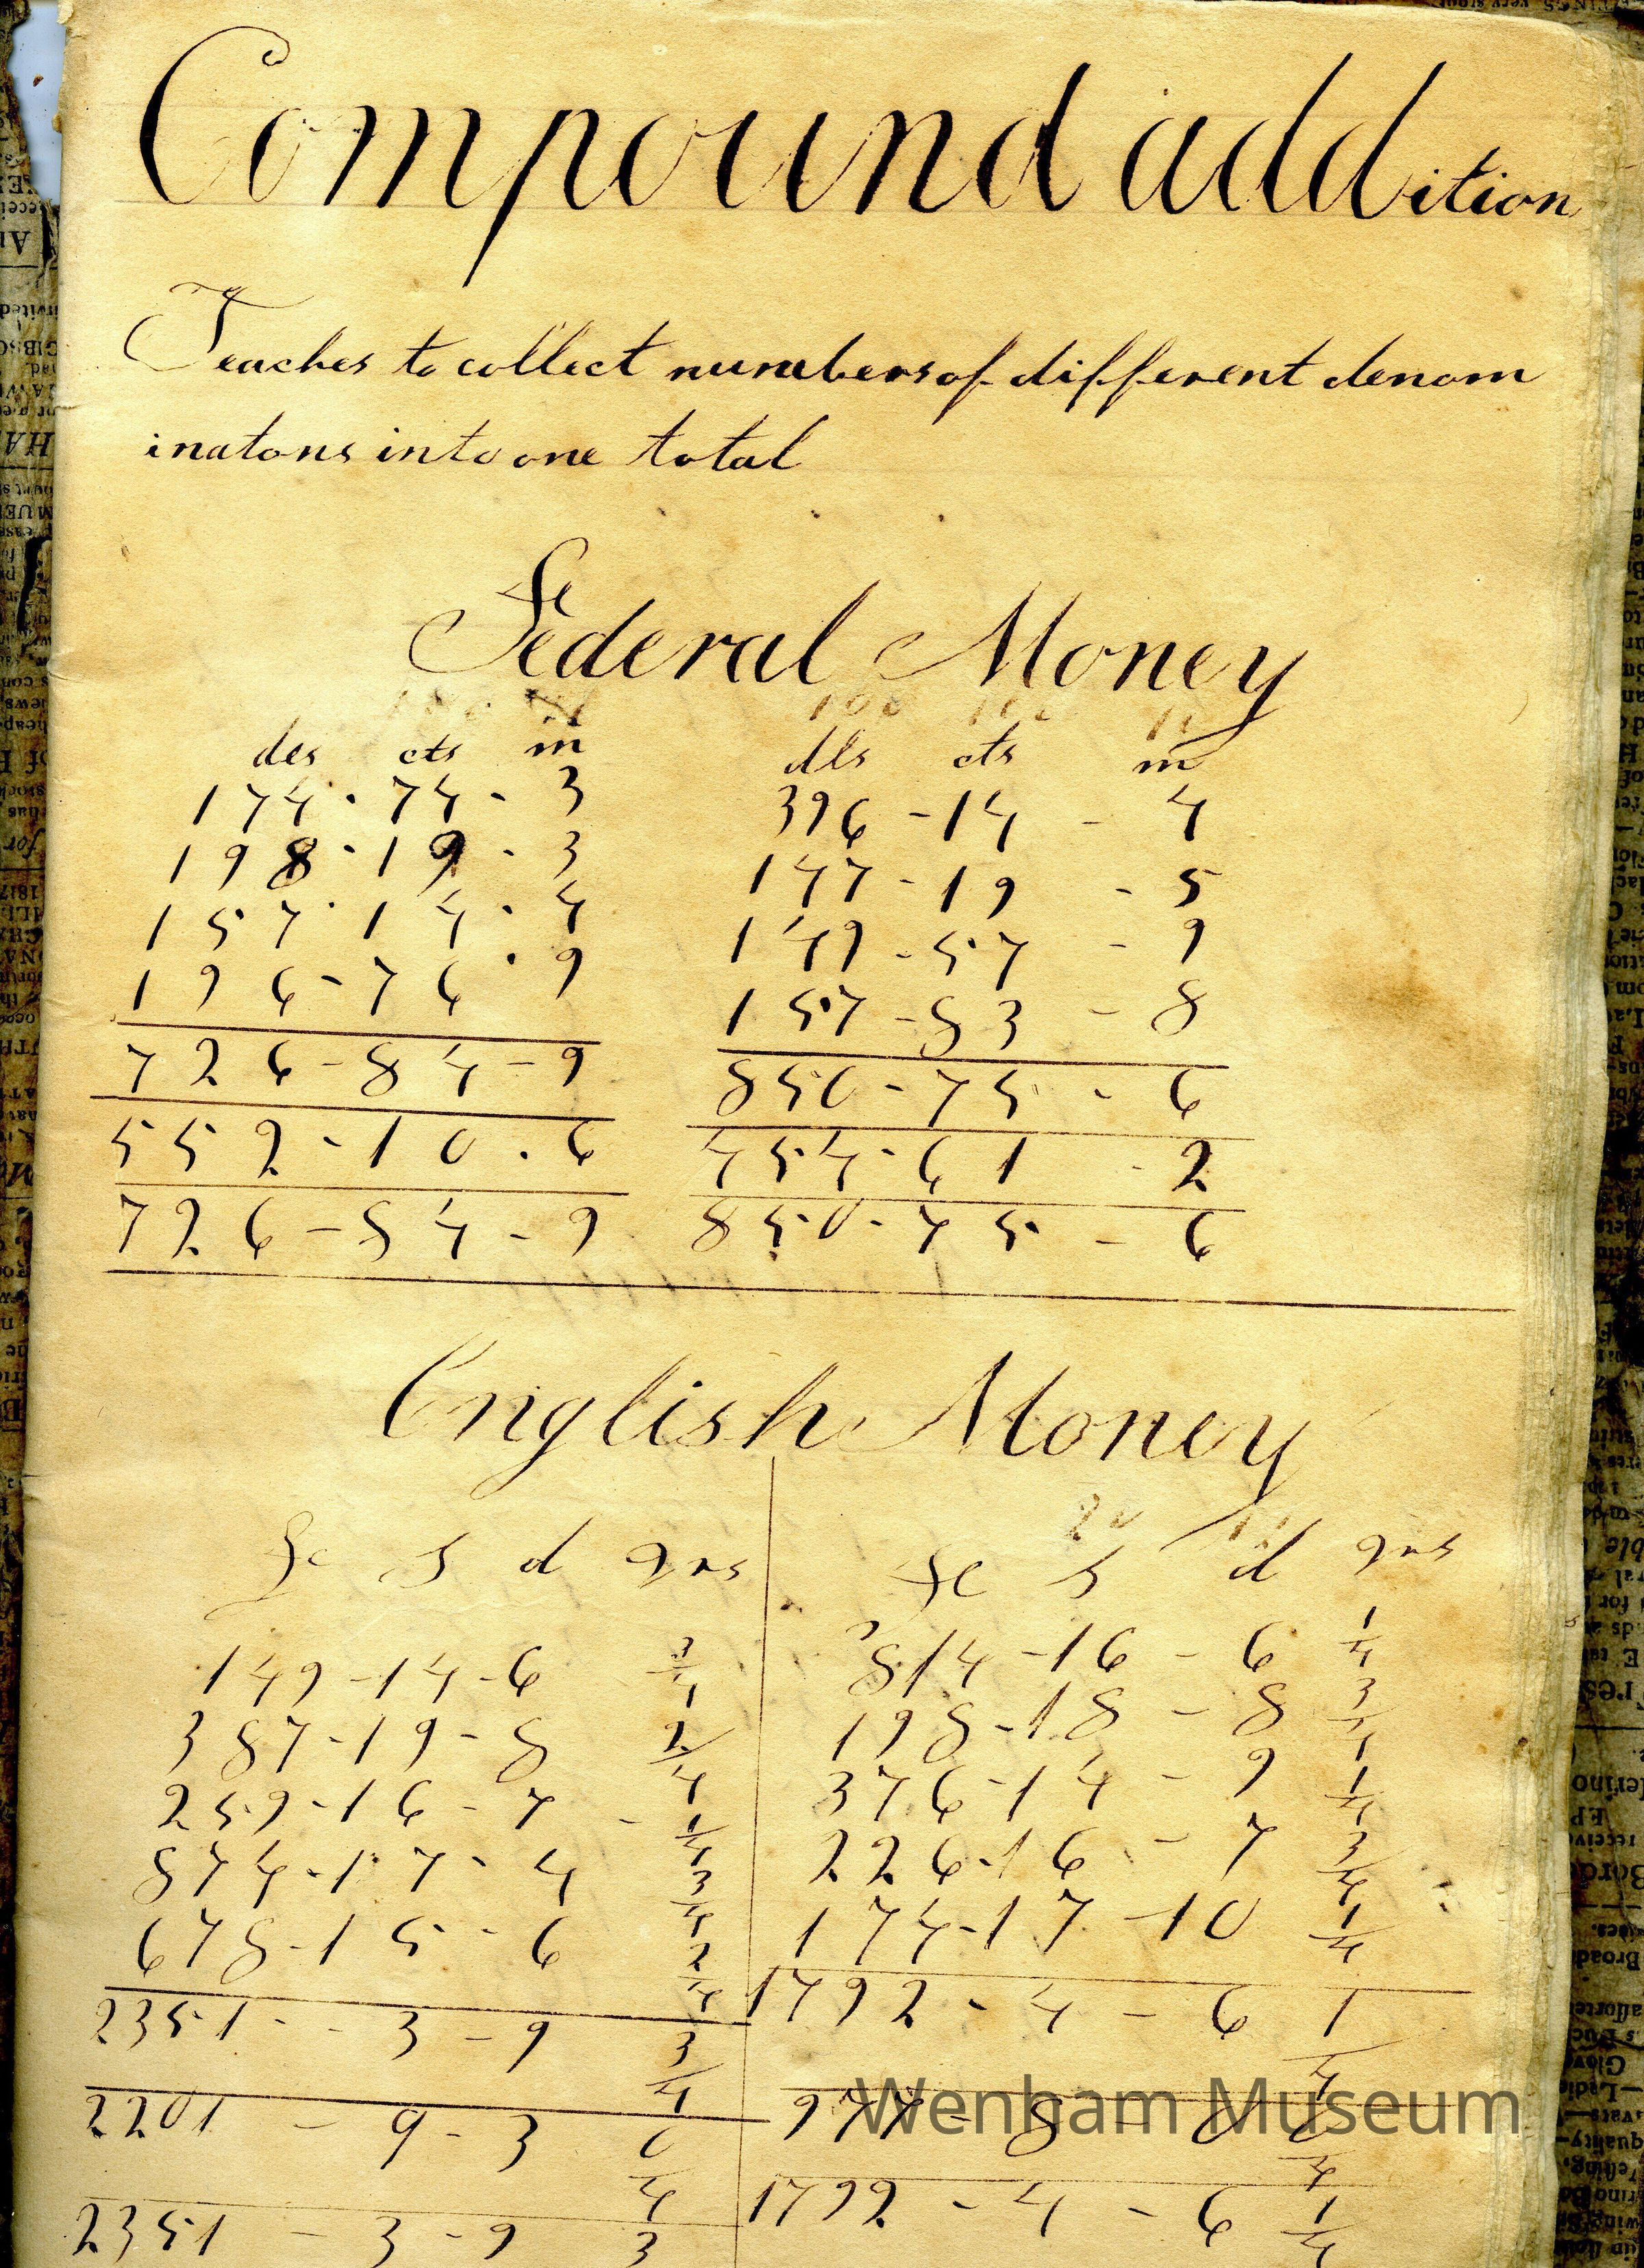 Compound addition
Teaches to collect numbers of different denom
inatons into one total
Federal Money
100 100 10
dls cts m
174 · 74 - 3
198 · 19 - 3
157 · 14 · 4
196 - 76 · 9
726 - 84 - 9
552 - 10 . 6
726 - 84 - 9
dls cts m
396 - 14 - 4
147 - 19 - 5
149 - 57 - 9
157 - 83 - 8
850 - 75 - 6
454 - 61 - 2
850 - 75 - 6
English Money
£ s d qrs
149 - 14 - 6 3/4
387 - 19 - 8 2/4
259 - 16 - 7 - 1/4
874 - 17 - 4 3/4
678 - 15 - 6 2/4
2351 - - 3 - 9 3/4
2201 - 9 - 3 0/4
2351 - 3 - 9 3
20 12
£ s d qrs
814 - 16 - 6 1/4
198 - 18 - 8 3/4
376 - 14 - 9 1/4
226 - 16 - 7 3/4
174 - 17 - 10 1/4
1792 - 4 - 6 1/4
977 - 8 - 0 0/4
1792 - 4 - 6 1/4
Wenham Museum